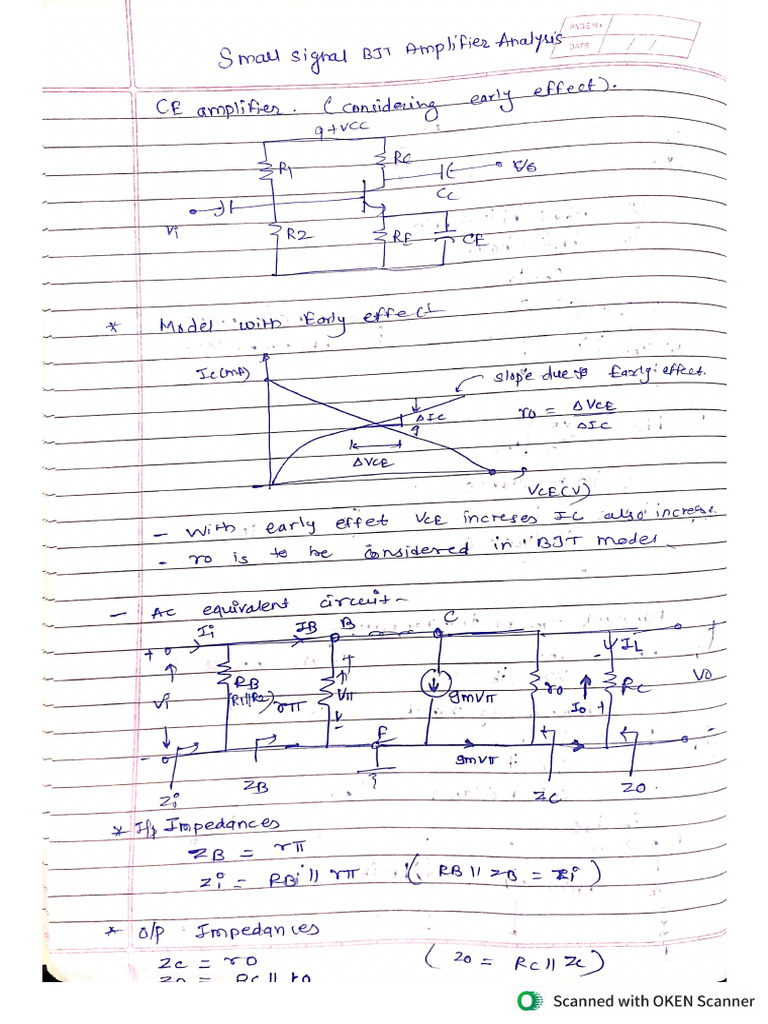 PAGE No
DATE
Small signal BJT Amplifier Analysis
CE amplifier. (considering early effect).
+VCC
R1
RC
Vo
Cc
Vi
R2
RE
CE
* Model with Early effect
Ic(mA)
slope due to Early effect.
ΔIC
ro = ΔVCE / ΔIC
ΔVCE
VCE(V)
- With early effet VCE increses IC also increse.
- ro is to be considered in BJT model
- AC equivalent circuit-
Ii
IB
B
C
+
IL
+
Vi
RB
(R1||R2)
rπ
+
Vπ
-
gmVπ
ro
Io
RC
Vo
-
E
gmVπ
-
Zi
ZB
ZC
ZO
* I/p Impedances
ZB = rπ
Zi = RB || rπ ( RB || ZB = Zi )
* O/P Impedances
Zc = ro ( Zo = RC || ZC )
Zo = RC || ro
Scanned with OKEN Scanner